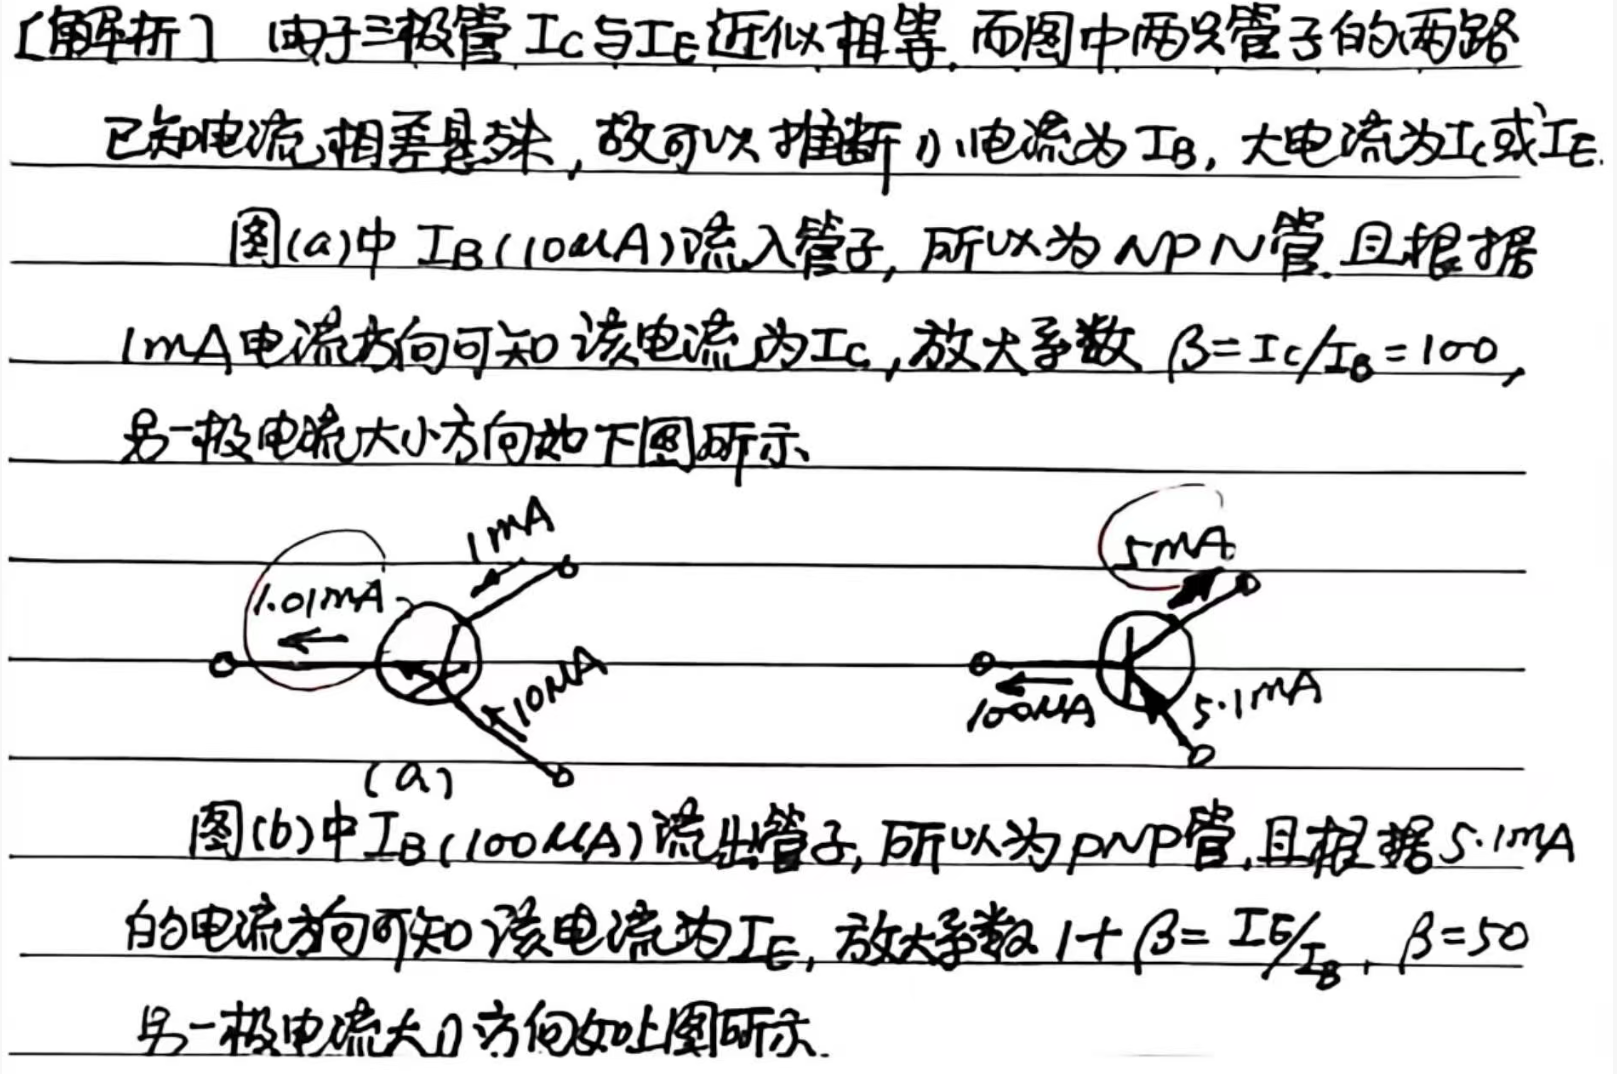 [解析] 由于三极管 IC与IE近似相等, 而图中两只管子的两路
已知电流相差悬殊, 故可以推断小电流为IB, 大电流为IC或IE.
图(a)中 IB(10μA)流入管子, 所以为NPN管, 且根据
1mA电流方向可知该电流为IC, 放大系数 β=IC/IB=100,
另一极电流大小方向如下图所示、
1mA
5mA
1.01mA
10μA
100μA
5.1mA
(a)
图(b)中IB(100μA)流出管子, 所以为PNP管, 且根据5.1mA
的电流方向可知该电流为IE, 放大系数 1+β=IE/IB, β=50
另一极电流大小方向如上图所示.